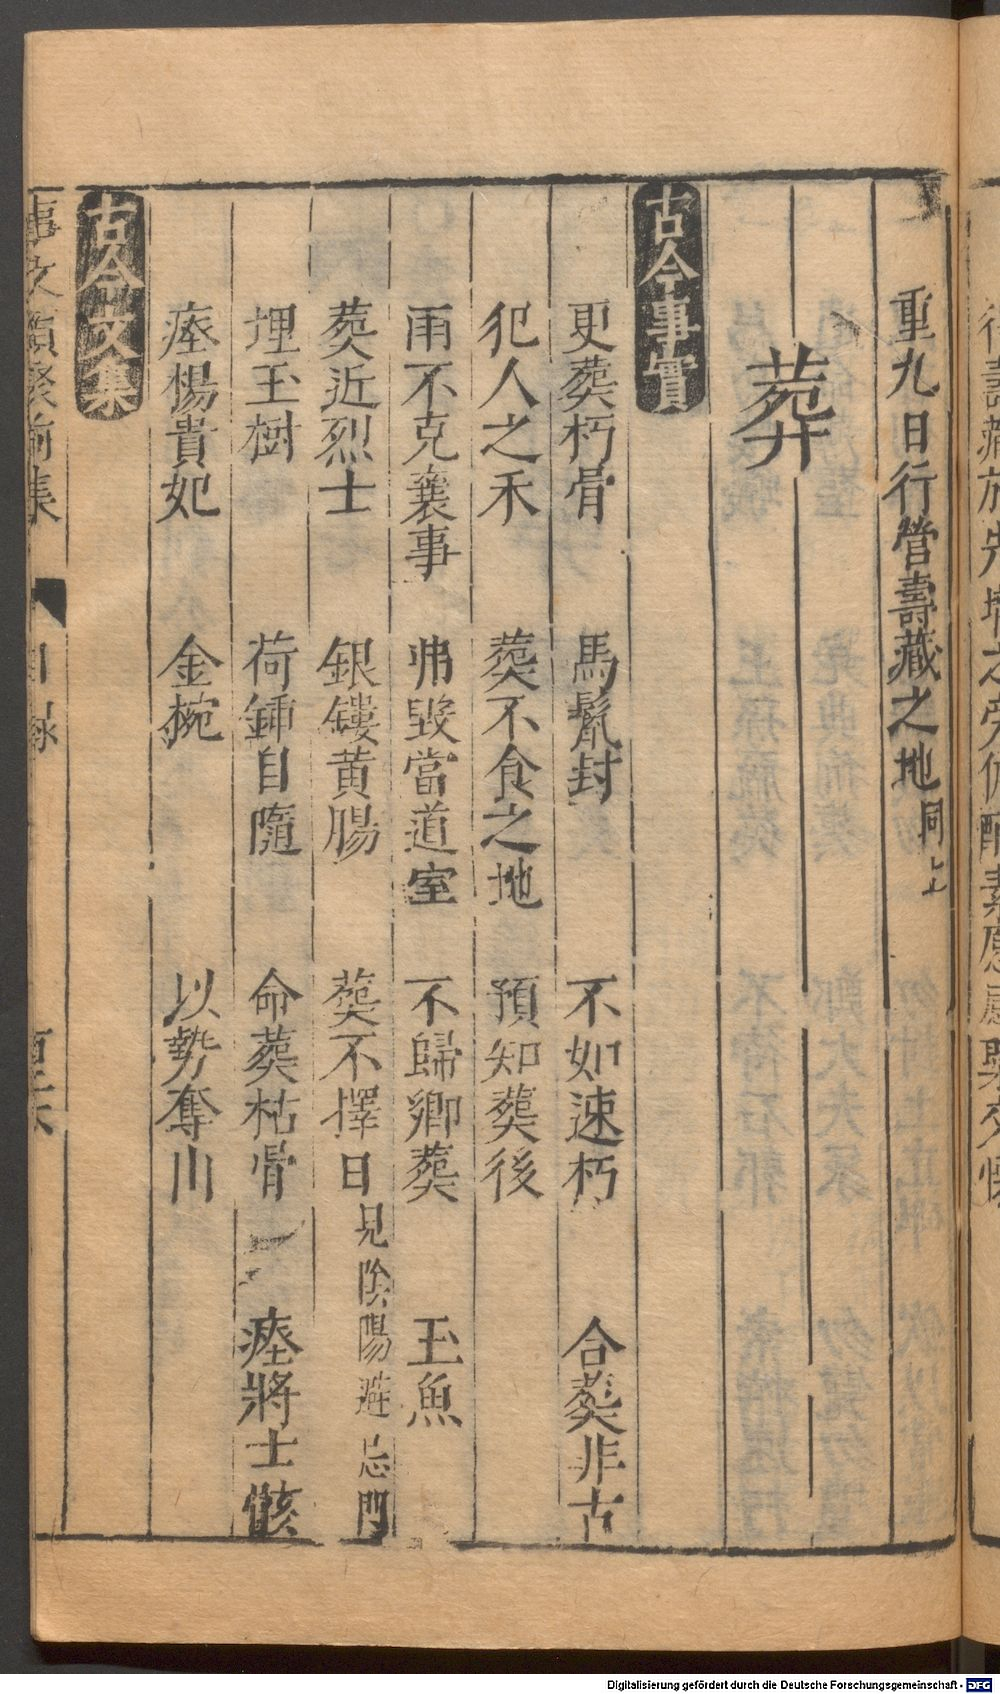 重九日行營壽藏之地同上
葬
古今事實
更葬朽骨　馬鬣封　不如速朽　合葬非古
犯人之禾　葬不食之地　預知葬後
雨不克襄事　弗毀當道室　不歸卿葬　玉魚
葬近烈士　銀鏤黄腸　葬不擇日見陰陽避忌門
埋玉樹　荷鍤自隨　命葬枯骨　瘞將士骸
瘞楊貴妃　金椀　以勢奪山
古今文集
事文類聚前集　目録
Digitalisierung gefördert durch die Deutsche Forschungsgemeinschaft - DFG